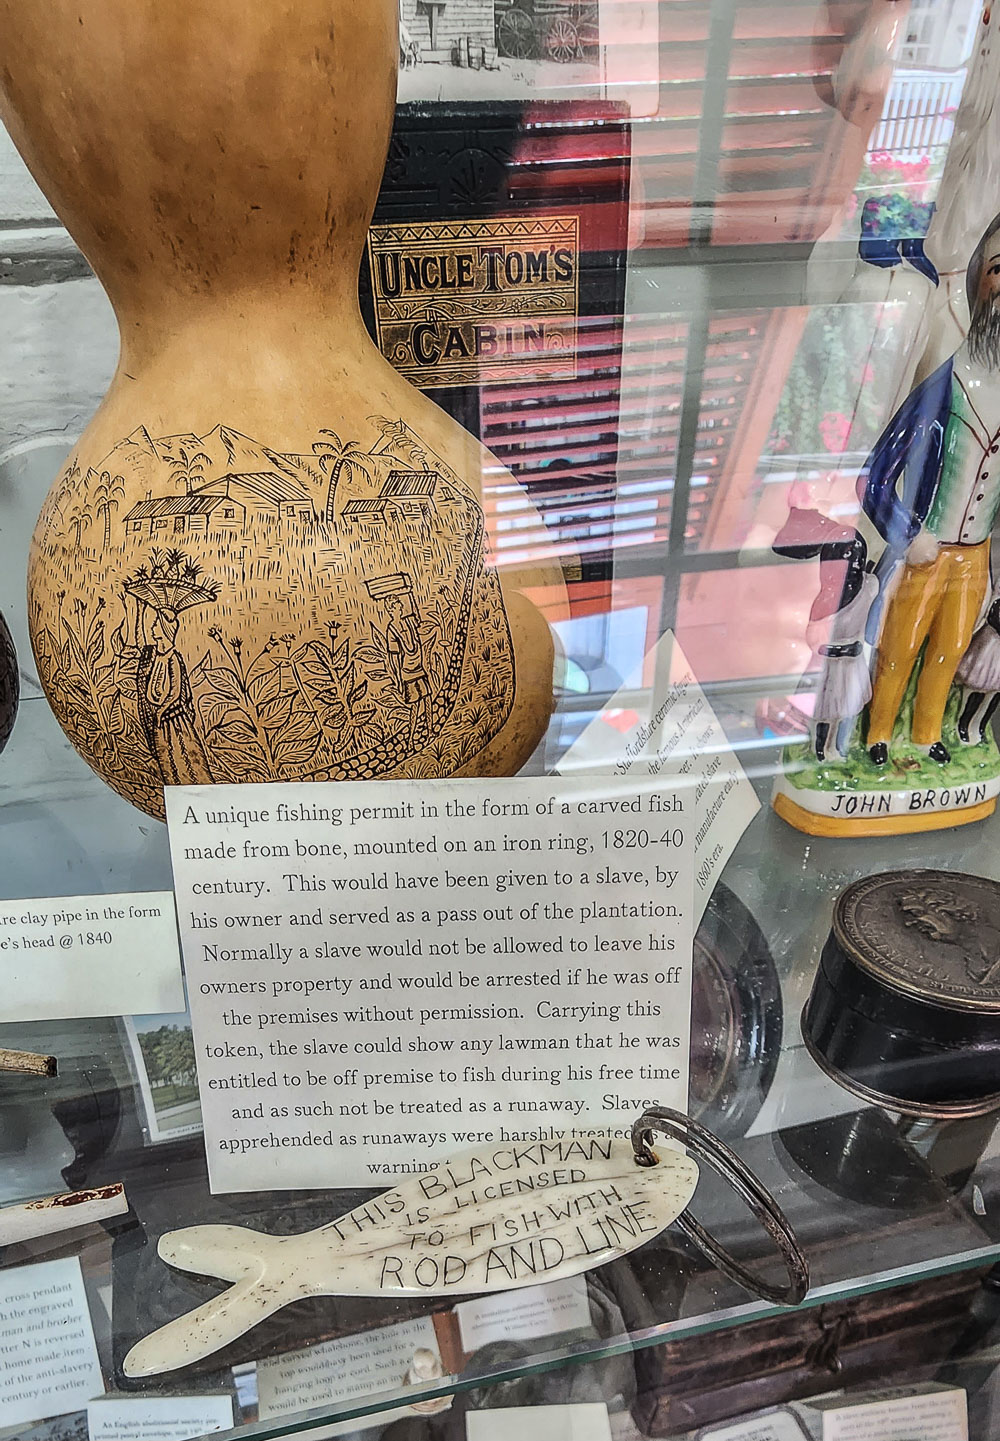 UNCLE TOM'S
CABIN
JOHN BROWN
Staffordshire ceramic figure
the famous American
slave
manufacture early
1860's era.
A unique fishing permit in the form of a carved fish
made from bone, mounted on an iron ring, 1820-40
century. This would have been given to a slave, by
his owner and served as a pass out of the plantation.
Normally a slave would not be allowed to leave his
owners property and would be arrested if he was off
the premises without permission. Carrying this
token, the slave could show any lawman that he was
entitled to be off premise to fish during his free time
and as such not be treated as a runaway. Slaves
apprehended as runaways were harshly treated as a
warning
re clay pipe in the form
e's head @ 1840
THIS BLACKMAN
IS LICENSED
TO FISH WITH
ROD AND LINE
cross pendant
h the engraved
man and brother
tter N is reversed
home made item
of the anti-slavery
century or earlier.
carved whalebone, the hole in the
top would have been used for a
hanging loop or cord. Such a
would be used to stamp
An English abolitionist society pre-
printed penny envelope, mid